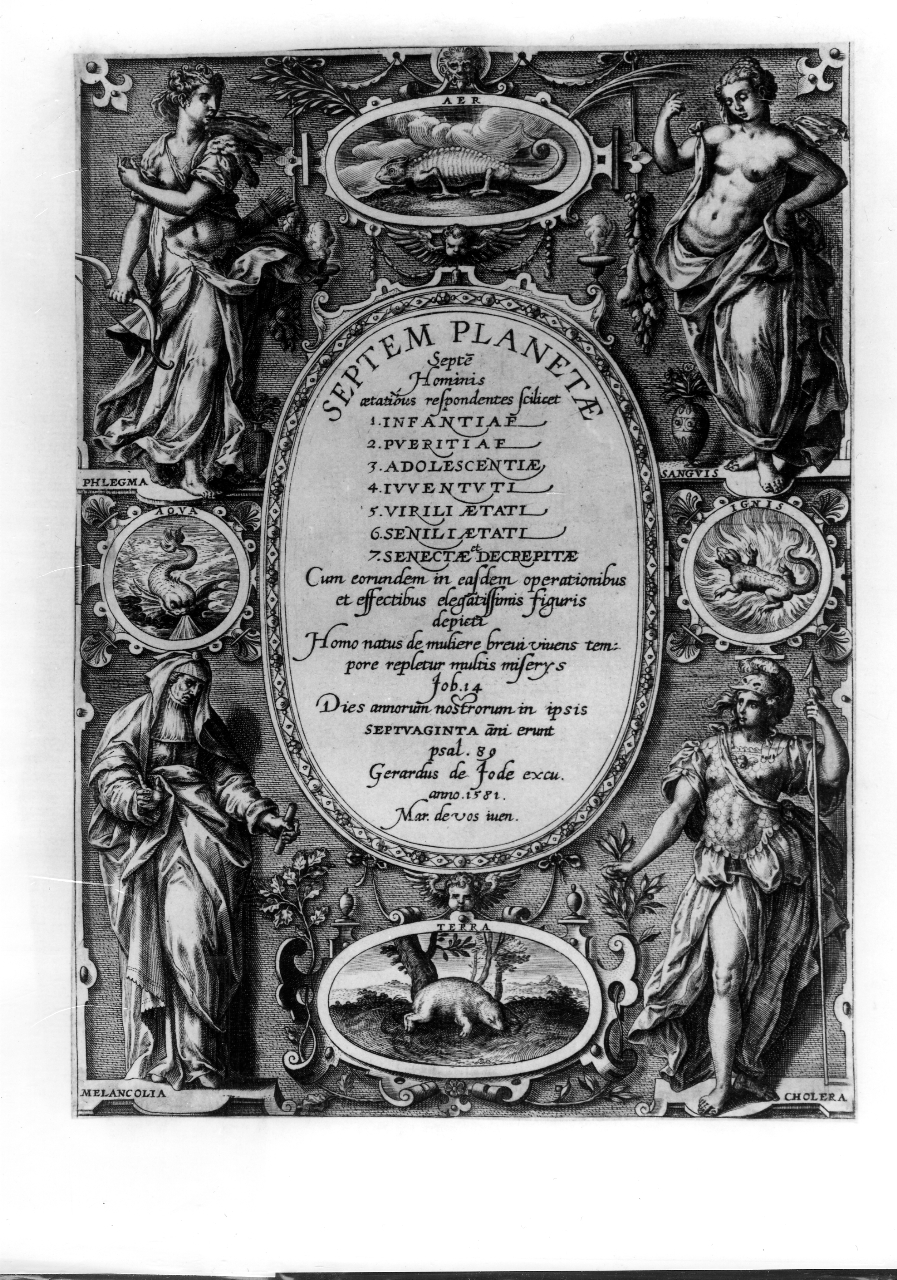 AER
SEPTEM PLANETÆ
Septē
Hominis
ætatibus respondentes scilicet
1. INFANTIAE
2. PVERITIAE
3. ADOLESCENTIÆ
4. IVVENTVTI
5. VIRILI ÆTATI
6. SENILI ÆTATI
7. SENECTÆ et DECREPITÆ
Cum eorundem in easdem operationibus
et effectibus elegātissimis figuris
depicti
Homo natus de muliere breui viuens tem:
pore repletur multis miserys
Job. 14
Dies annorum nostrorum in ipsis
SEPTVAGINTA āni erunt
psal. 89
Gerardus de Jode excu.
anno. 1581.
Mar. de vos iuen.
PHLEGMA
SANGVIS
AQVA
IGNIS
TERRA
MELANCOLIA
CHOLERA